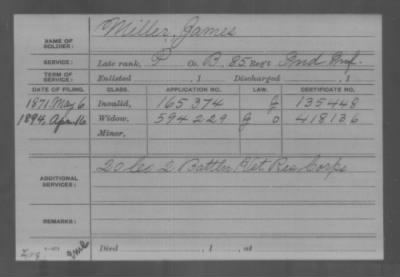 NAME OF SOLDIER: Miller, James
SERVICE: Late rank, P Co. B, 85 Reg't Ind Inf.
TERM OF SERVICE: Enlisted , 1 Discharged , 1
DATE OF FILING. CLASS. APPLICATION NO. LAW. CERTIFICATE NO.
1871, May 6 Invalid, 165374 G 135448
1894, Apr. 16 Widow, 594229 G D 418136
Minor,
ADDITIONAL SERVICES: 20 Co 2 Battln Vet Res Corps
REMARKS:
Died , 1 , at